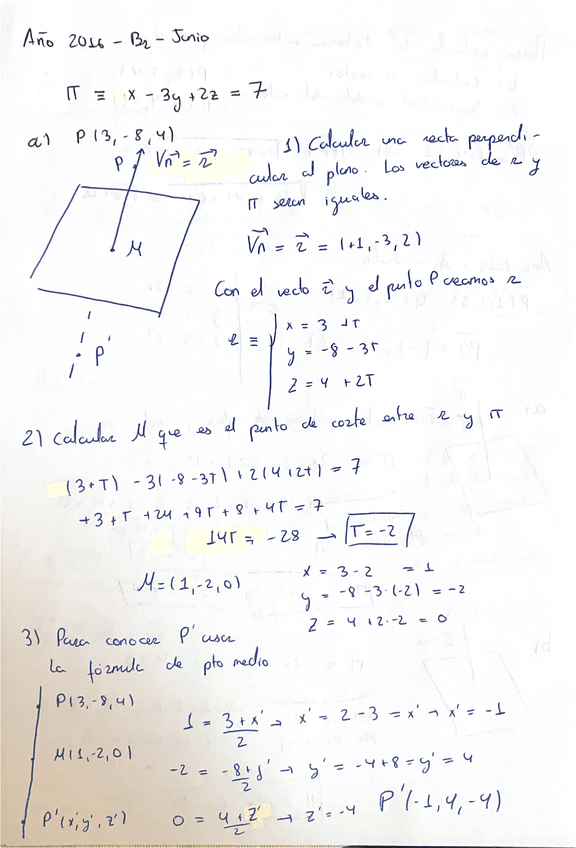 Año 2016 - B2 - Junio
π ≡ x - 3y + 2z = 7
a) P(3, -8, 4)
P Vn→ = r→
M
P'
1) Calcular una recta perpendi-
cular al plano. Los vectores de r y
π seran iguales.
Vn→ = r→ = (+1, -3, 2)
Con el vecto r→ y el punto P creamos r
r ≡
x = 3 + T
y = -8 - 3T
z = 4 + 2T
2) Calcular M que es el punto de corte entre r y π
(3+T) - 3(-8-3T) + 2(4+2T) = 7
+3 + T + 24 + 9T + 8 + 4T = 7
14T = -28 → T = -2
M = (1, -2, 0)
x = 3 - 2 = 1
y = -8 - 3·(-2) = -2
z = 4 + 2·-2 = 0
3) Para conocer P' usar
la fórmula de pto medio
P(3, -8, 4)
M(1, -2, 0)
P'(x', y', z')
1 = 3 + x' / 2 → x' = 2 - 3 = x' → x' = -1
-2 = -8 + y' / 2 → y' = -4 + 8 = y' = 4
0 = 4 + z' / 2 → z' = -4
P'(-1, 4, -4)